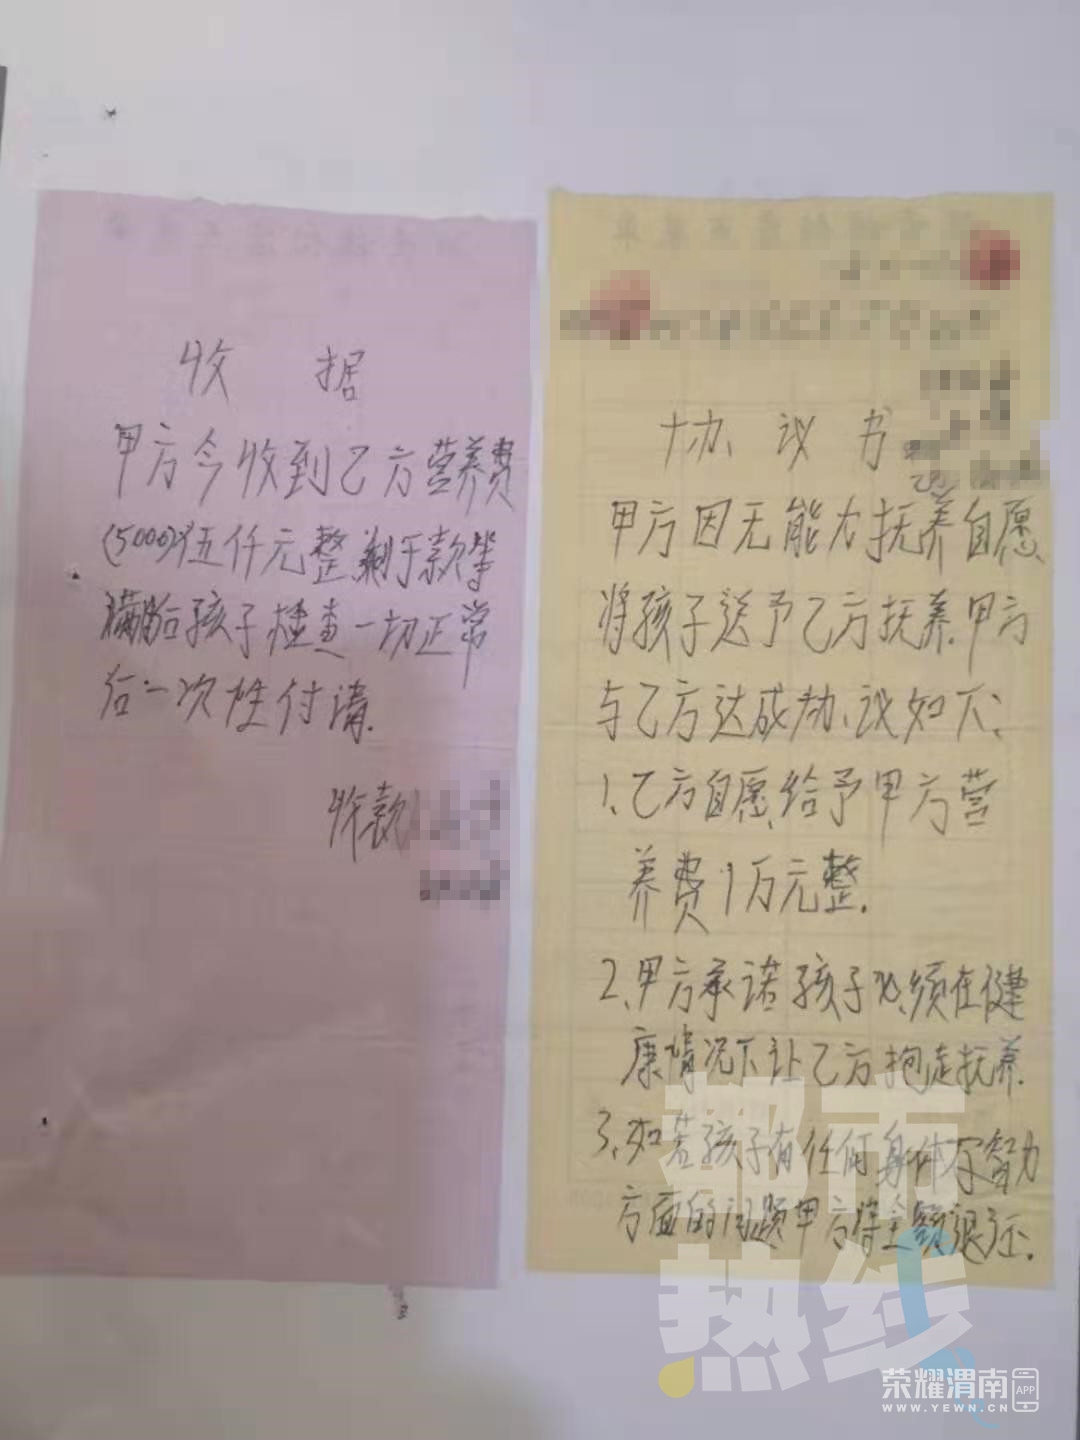 收 据
甲方今收到乙方营养费
(5000)伍仟元整.剩于款等
满月后孩子检查一切正常
后一次性付清.
收款
协 议 书
甲方因无能力抚养自愿
将孩子送予乙方抚养.甲方
与乙方达成协议如下:
1、乙方自愿给予甲方营
养费1万元整.
2、甲方承诺孩子必须在健
康情况下让乙方抱走抚养.
3、如若孩子有任何身体
方面的问题甲方将全额退还.
都市
热线
荣耀渭南 APP
WWW.YEWN.CN